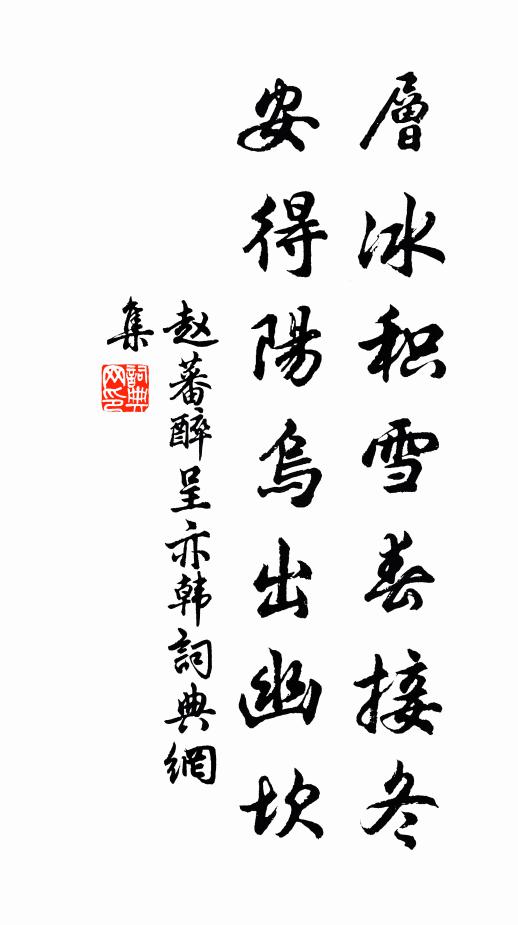 層冰积雪春接冬
安得陽烏出幽坎
赵蕃醉呈亦韩詞典網
集
詞典网印